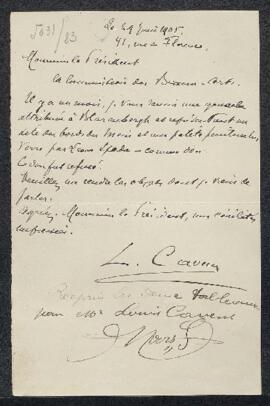 5031/83
Le 29 1905.
41, rue de Florence
Monsieur le Président
la Commission des Beaux-Arts.
Il y a un mois, je vous une gouache
attribuée à Blarenberghe et représentant un
des bords du et une petite peinture sur
verre par Spada comme don
Ce don fut refusé.
Veuillez me rendre les objets dont je viens de
parler.
Agréez, Monsieur le Président, mes civilités
empressées.
L. Cavens
Repris les deux tableaux
pour Mr Louis Cavens